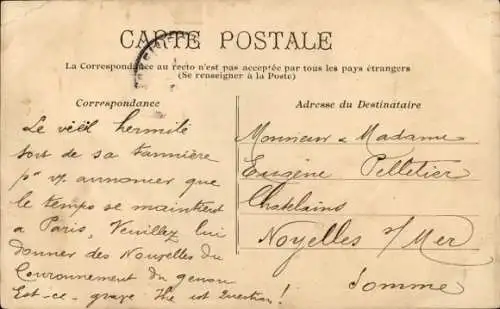 CARTE POSTALE
La Correspondance au recto n'est pas acceptée par tous les pays étrangers
(Se renseigner à la Poste)
Correspondance
Adresse du Destinataire
Le viéil hermité
sort de sa tannière
pr vs annoncer que
le temps se maintient
a Paris, Veuillez lui
donner des Nouvelles du
Couronnement du genou
Est-ce grave The ist Question!
Monsieur & Madame
Eugène Pelletier
Chatelains
Noyelles s/Mer
Somme